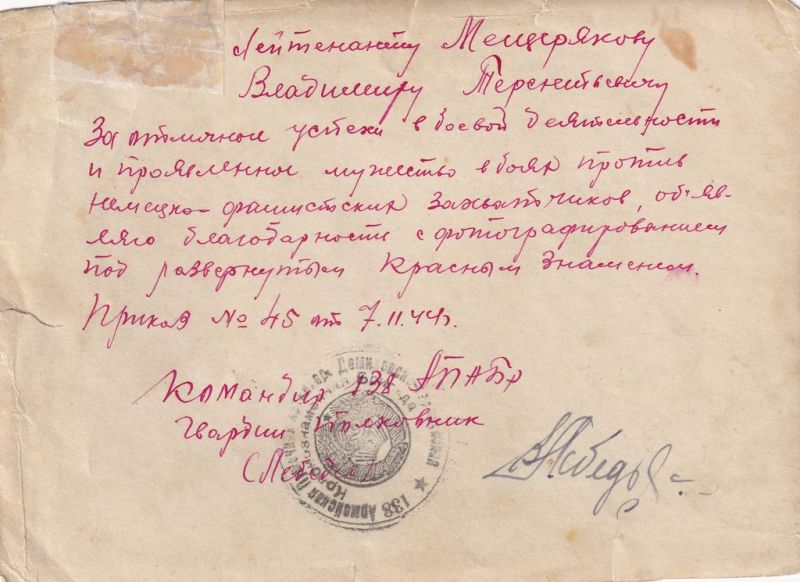 Лейтенанту Мещерякову
Владимиру Терентьевичу
За отличное успехи в боевой деятельности
и проявленное мужество в боях против
немецко-фашистских захватчиков, об'яв-
ляю благодарности с фотографированием
под развернутым Красным Знаменем.
Приказ № 45 от 7.11.44г.
Командир 138 АПАБр
Гвардии Полковник
138 Армейская